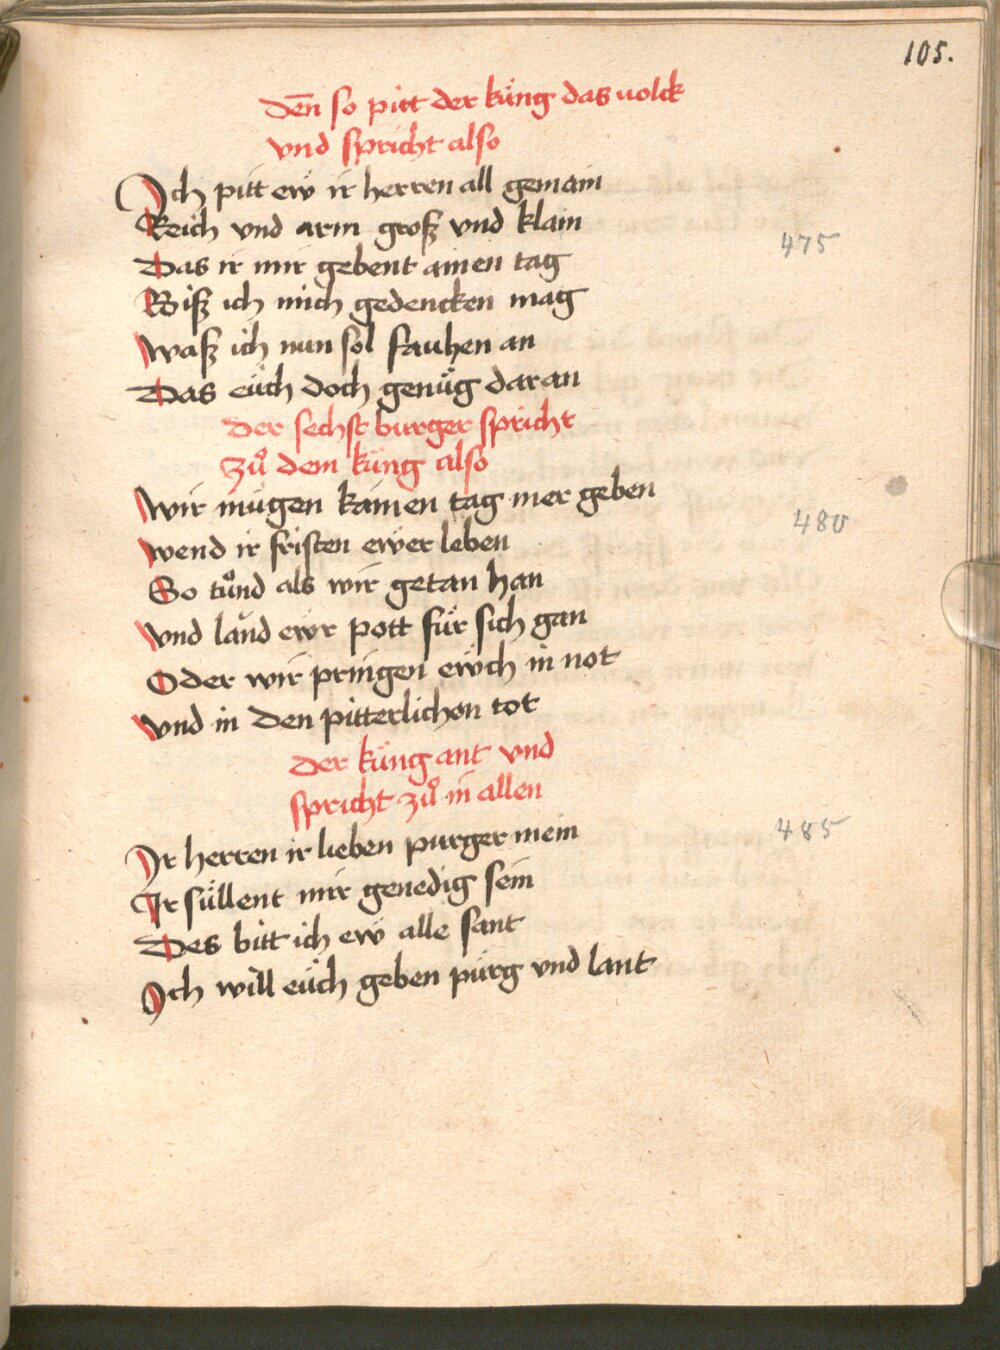 105.
Den̄ so pitt der küng das uolck
vnd spricht also
Ich pitt ew̎ ir herren all gemain
Reich vnd arm groß vnd klain
475
Das ir mir gebent ainen tag
Biß ich mich gedencken mag
Waß ich nun sol fauhen an
Das eüch doch genüg daran
Der sechst burger spricht
Zuͦ dem küng also
Wir mügen kainen tag mer geben
480
Wend ir fristen ewer leben
So tuͦnd als wir getan han
Vnd land ewr pott für sich gan
Oder wir pringen ewch in not
Vnd in den pitterlichen tot
Der küng ant vnd
spricht zuͦ in allen
485
Ir herren ir lieben purger mein
Ir süllent mir genedig sein
Des bitt ich ew̎ alle sant
Ich will eüch geben pürg vnd lant